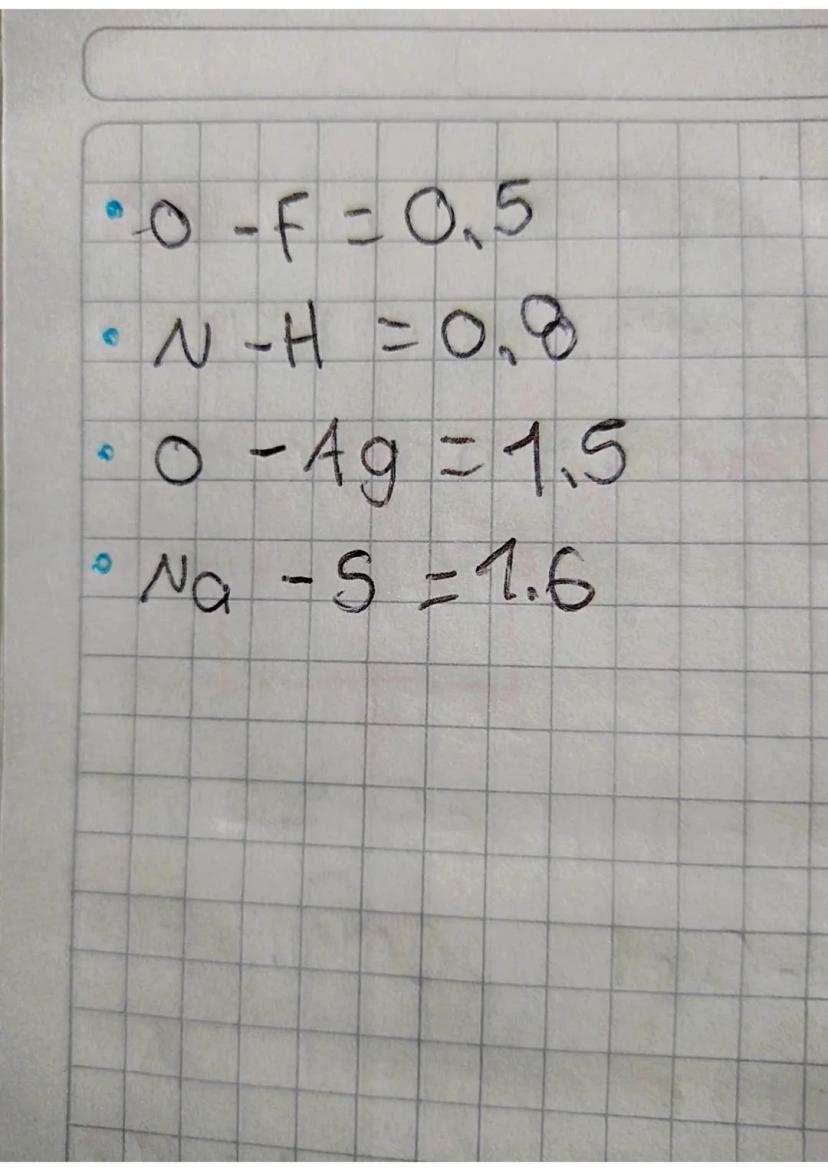 • O - F = 0.5
• N - H = 0.8
• O - Ag = 1.5
• Na - S = 1.6